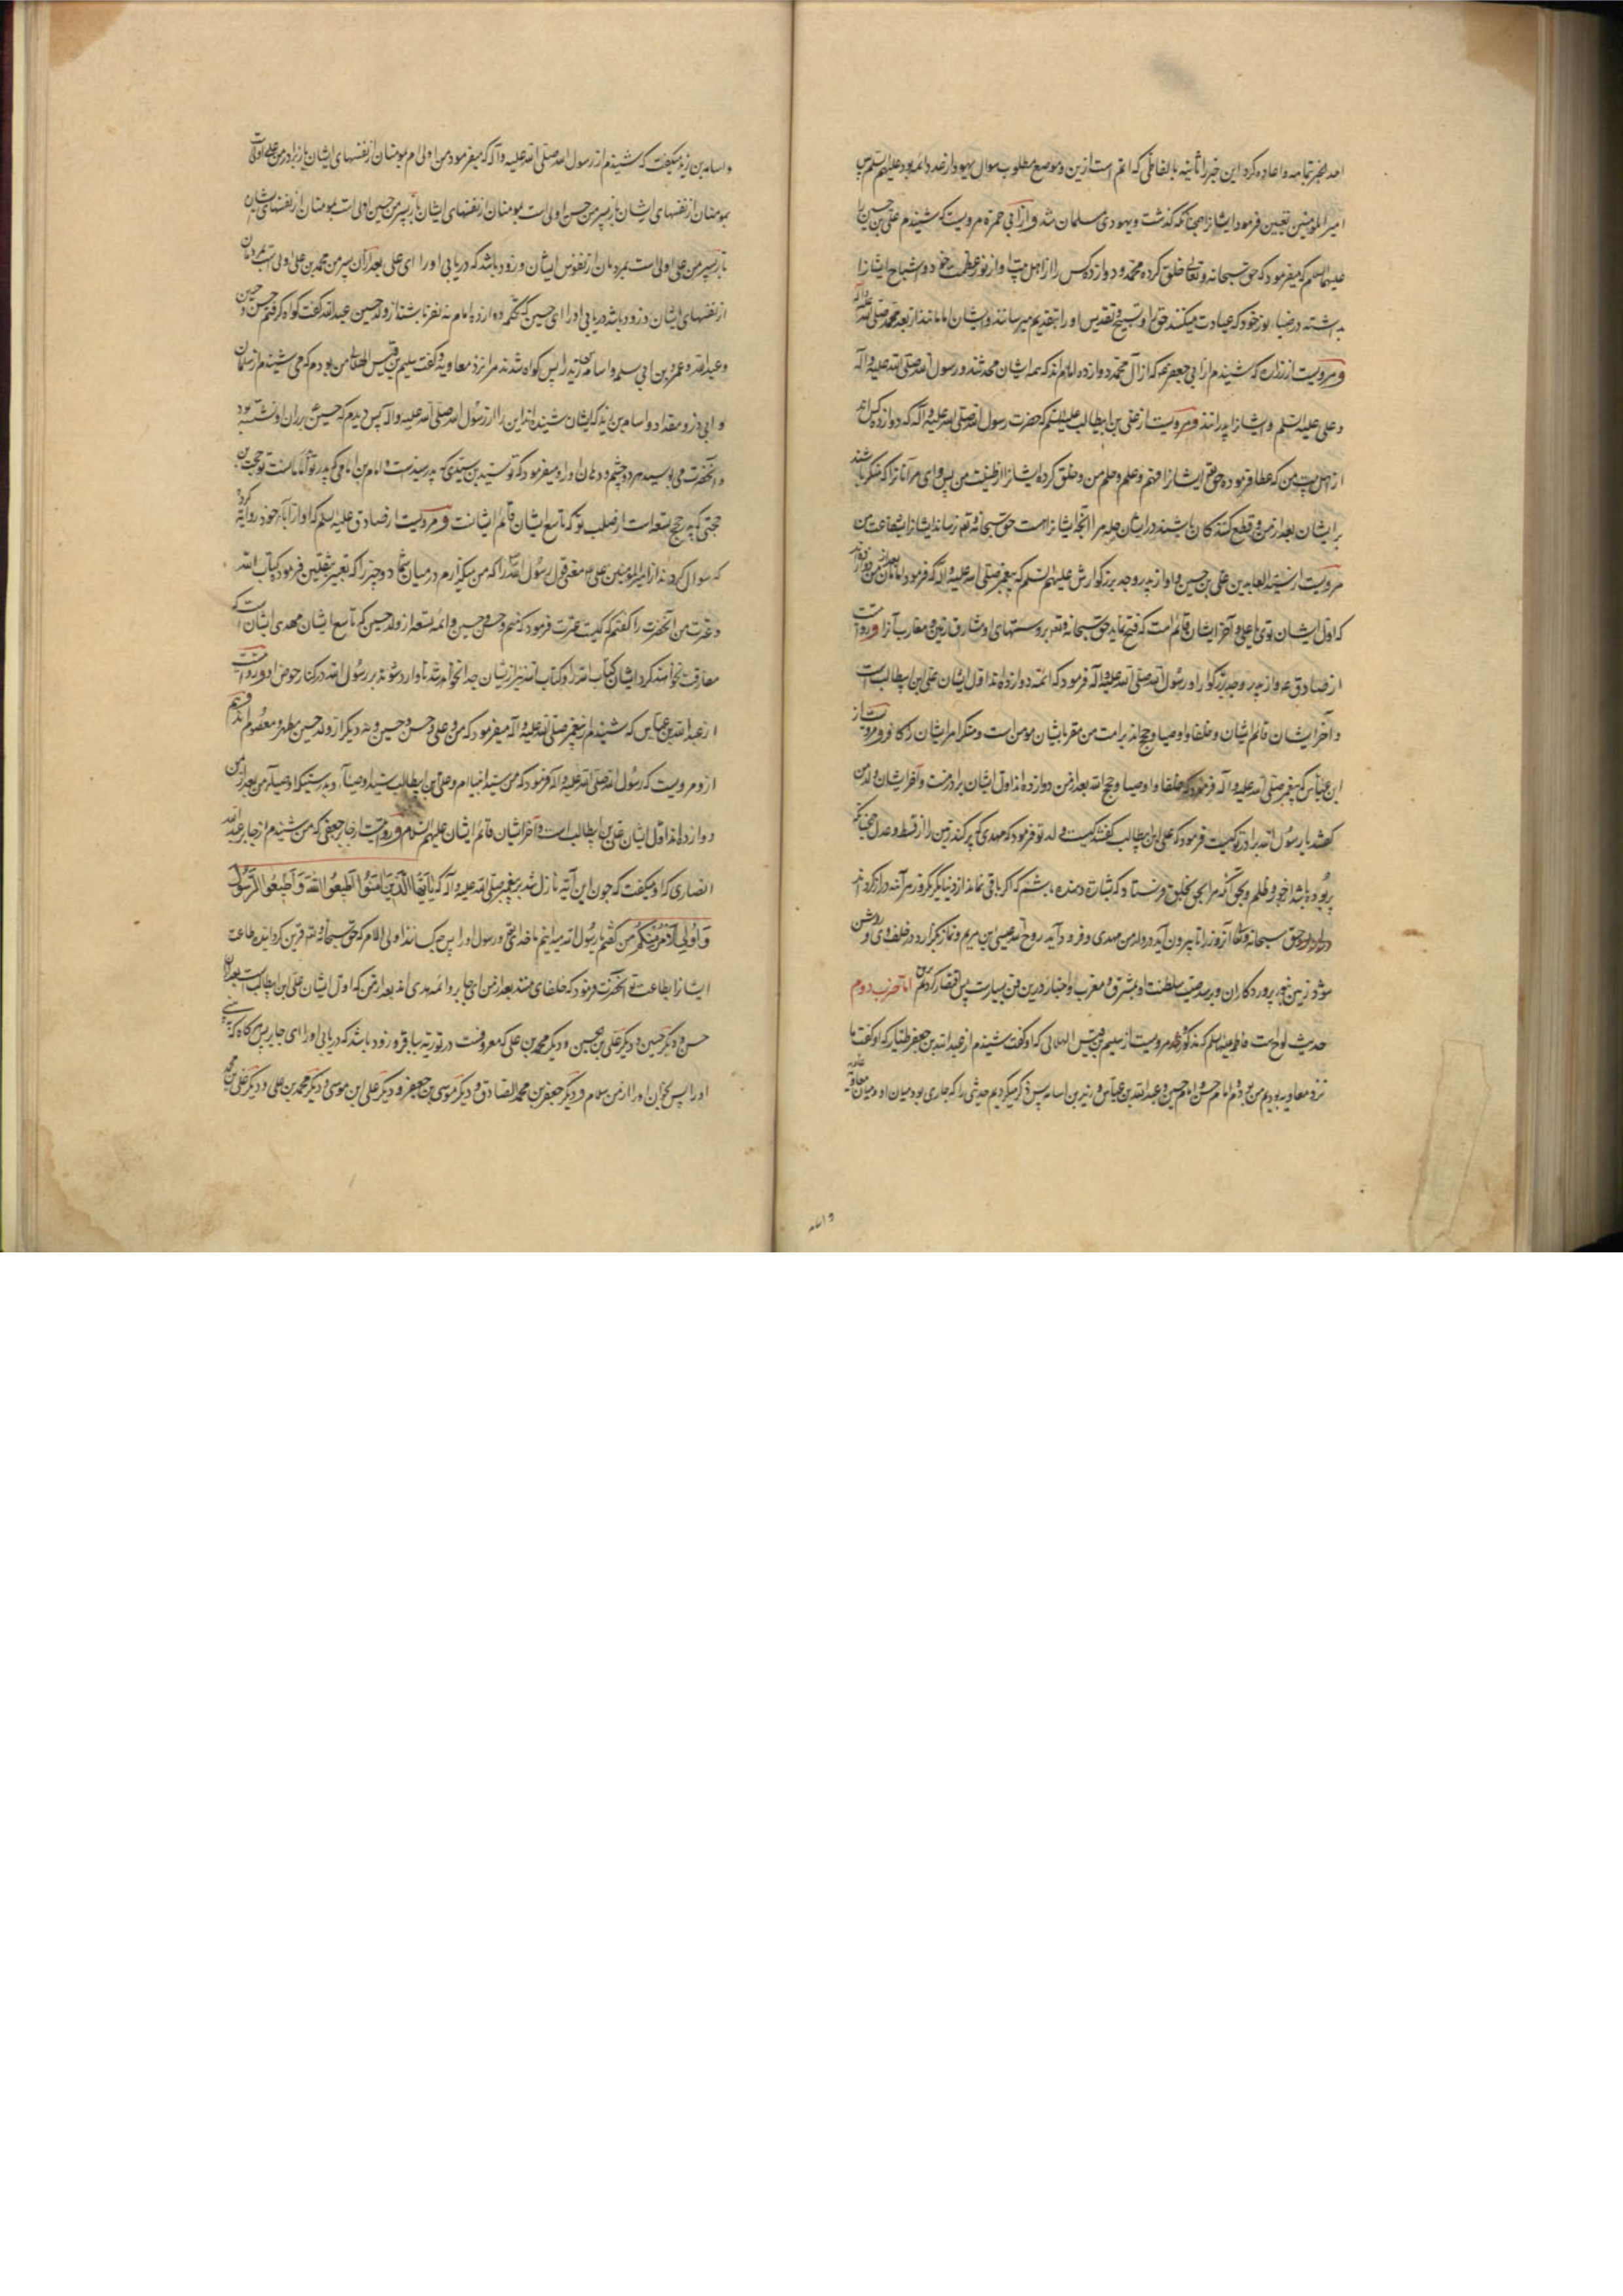 و اعاده کرد این خبر را ثانیه بالفاظی که اتم است ازین و موضع مطلوب سوال یهود از عدد ائمه بود علیهم السلم پس
امیر المومنین تعیین فرمود ایشانرا همچنانکه گذشت و یهودی مسلمان شد و از ابی حمزه مرویست که شنیدم علی بن حسین را
علیهما السلم که میفرمود که حق سبحانه و تعالی خلق کرده محمد و دوازده کس را از اهل بیت او از نور عظمت خود اشباح ایشانرا
در ضیاء نور خود که عبادت میکنند حق را و تسبیح و تقدیس او را بتقدیم میرسانند و ایشان امامانند از بعد محمد صلی الله علیه و آله
و مرویست از زراره که شنیدم از ابی جعفر که از آل محمد دوازده امام اند که همه ایشان محدثند و رسول الله صلی الله علیه و آله
و علی علیه السلم و ایشانرا پدرانند و مرویست از علی بن ابیطالب علیه السلم که حضرت رسول الله صلی الله علیه و آله که دوازده کس اند
از اهل بیت من که عطا فرموده حق تعالی ایشانرا فهم و علم و حلم من و خلق کرده ایشانرا از طینت من پس وای مر آنانرا که منکر باشند
بر ایشان بعد از من و قطع کنندکان باشند در ایشان صله مرا انچه ایشانراست حق سبحانه و تعالی نرساند ایشانرا شفاعت من
مرویست از سید العابدین علی بن حسین و او از پدر و جد بزرکوارش علیهم السلم که پیغمبر صلی الله علیه و آله که فرمود امامان بعد از من دوازده اند
که اول ایشان توی یا علی و آخر ایشان قائم است که فتح نماید حق سبحانه و تعالی بر دستهای او مشارق زمین و مغارب آنرا و روایت
از صادق ع و از پدر و جد بزرکوار او رسول الله صلی الله علیه و آله فرمود که ائمه دوازده اند اول ایشان علی ابن ابیطالب است
و آخر ایشان قائم ایشان و خلفا و اوصیا و حجج اند بر امت من مقر بایشان مومن است و منکر مر ایشان را کافر و مرویست از
ابن عباس که پیغمبر صلی الله علیه و آله فرمود که خلفا و اوصیا و حجج الله بعد از من دوازده اند اول ایشان برادر منست و آخر ایشان ولد من
کفتند یا رسول الله برادر تو کیست فرمود که علی ابن ابیطالب کفتند کیست ولد تو فرمود که مهدی که پر کند زمین را از قسط و عدل همچنانکه
پر بوده باشد از جور و ظلم و بحق آنکه مرا بحق بخلق فرستاد که بشارت دهنده باشم که اکر باقی نماند از دنیا مکر یکروز هر آینه دراز کرداند
حق سبحانه و تعالی آنروز را تا بیرون آید در او ولد من مهدی و فرود آید روح الله عیسی ابن مریم و نماز بکزارد در خلف وی و روشن
شود زمین بنور پروردکار آن و برسد صیت سلطنت او بمشرق و مغرب و اخبار درین فن بسیارست پس اقتصار کردیم اما ضرب دوم
حدیث لوح است فاطمه علیها السلم که مذکور شد و مرویست از سلیم بن قیس الهلالی که او کفت شنیدم از عبد الله بن جعفر طیار که او کفت ما
نزد معاویه بودیم من بودم و امام حسن و امام حسین و عبد الله بن عباس و زید بن اسامه پس ذکر میکردیم حدیثی را که جاری بود میان او و میان معاویه
و اسامه
و اسامه بن زید میکفت که شنیدم از رسول الله صلی الله علیه و آله که میفرمود من اولی ام بمومنان از نفسهای ایشان باز برادر من علی اولیست
بمومنان از نفسهای ایشان باز پسر من حسن اولی است بمومنان از نفسهای ایشان باز پسر من حسین اولی است بمومنان از نفسهای ایشان
باز پسر من علی اولی است بمردمان از نفوس ایشان و زود باشد که دریابی او را ای علی بعد از آن پسر من محمد بن علی اولی است بمردمان
از نفسهای ایشان و زود باشد دریابی او را ای حسین که تکمله دوازده امام نه نفر باشند از ولد حسین عبد الله کفت کواه کرفتم حسن و حسین
و عبد الله و عمر بن ابی سلمه و اسامه بن زید را پس کواه شدند مرا نزد معاویه و کفت سلیم بن قیس الهلالی من بودم که می شنیدم از سلمان
و ابی ذر و مقداد و اسامه بن زید که ایشان شنیده اند این را از رسول الله صلی الله علیه و اله پس دیدم که حسین ع بر ران او نشسته بود
و آنحضرت می بوسید هر دو چشم و دهان او را و میفرمود که تو سید بن سیدی که پدر سیدانست و امام بن امامی که پدر تو امامانست تو حجت بن
حجتی که پدر حجج تسعه است از صلب تو که تاسع ایشان قائم ایشانست و مرویست از صادق علیه السلم که او از آباء خود روایت کرد
که سوال کردند از امیر المومنین علی ع معنی قول رسول الله را که من میکذارم در میان شما دو چیز را که تعبیر بثقلین فرمود کتاب الله
و عترت من آنحضرت را کفتم که کیست عترت فرمود که منم و حسن و حسین و ائمه تسعه از ولد حسین که تاسع ایشان مهدی ایشان است که
مفارقت نخواهند کرد ایشان کتاب الله را و کتاب الله نیز از ایشان جدا نخواهد شد تا وارد شوند بر رسول الله در کنار حوض او و روایتست
از عبد الله بن عباس که شنیدم از پیغمبر صلی الله علیه و آله میفرمود که من و علی و حسن و حسین و نه دیکر از ولد حسین مطهر و معصوم
از و مرویست که رسول الله صلی الله علیه و اله فرمود که من سید انبیا ام و علی بن ابیطالب سید اوصیا و بدرستیکه اوصیاء من بعد از من
دوازده اند اول ایشان علی بن ابیطالب است و آخر ایشان قائم ایشان علیهم السلام و مرویست از جابر جعفی که من شنیدم از جابر عبد الله
انصاری که او میکفت که چون این آیه نازل شد بر پیغمبر صلی الله علیه و اله که یا ایها الذین آمنوا اطیعوا الله و اطیعوا الرسول
و اولی الامر منکم من کفتم یا رسول الله میدانیم ما خدایتعالی و رسول او را پس کیستند اولی الامر که حق سبحانه و تعالی قرین کردانیده طاعت
ایشانرا بطاعت تو آنحضرت فرمود که خلفای منند بعد از من ای جابر و ائمه هدی اند بعد از من که اول ایشان علی بن ابیطالب است بعد از آن
حسن و دیکر حسین و دیکر علی بن حسین و دیکر محمد بن علی که معروفست در توریة بباقر و زود باشد که دریابی او را ای جابر پس هرکاه که به بینی
او را پس بخوان او را از من سلام و دیکر جعفر بن محمد الصادق و دیکر موسی بن جعفر و دیکر علی ابن موسی و دیکر محمد بن علی و دیکر علی بن محمد